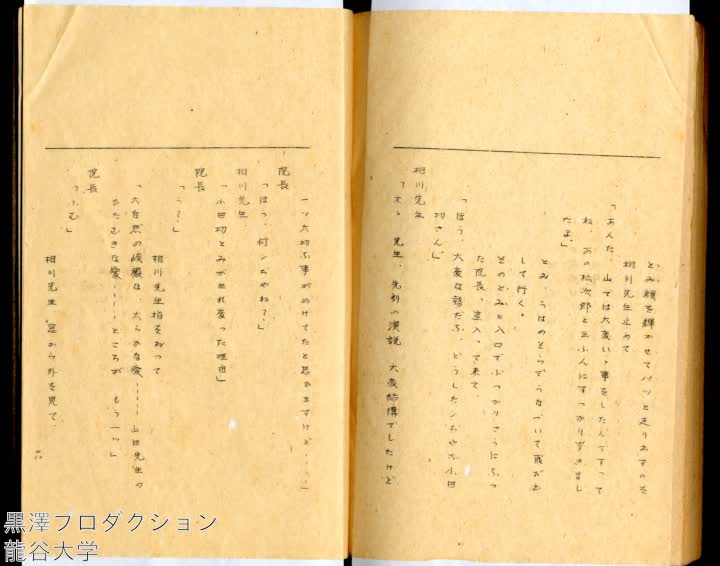 とみ頬を輝かせてパッと走り出すのを
相川先生止めて
「あんた、山では大変いゝ事をしたんですって
ね、あの松次郎と云ふ人にすっかり聞きまし
たよ」
とみ、うはのそらでうなづいて飛び出
して行く。
そのとみと入口でぶつかりさうになっ
た院長、這入って来て
「ほう、大変な勢だな、どうしたンぢゃね小田
切さん」
相川先生
「まゝ先生、先刻の演説、大変結構でしたけど
一ツ大切な事がぬけてたと思ひますけど……」
院長
「はっ、何ンぢゃね？」
相川先生
「小田切とみが生れ変った理由」
院長
「うっ？」
相川先生指をおって
「大自然の峻厳な、大らかな愛……山田先生の
ひたむきな愛……ところが、もう一つ」
院長
「ふむ」
相川先生、窓から外を見て、
黒澤プロダクション
龍谷大学